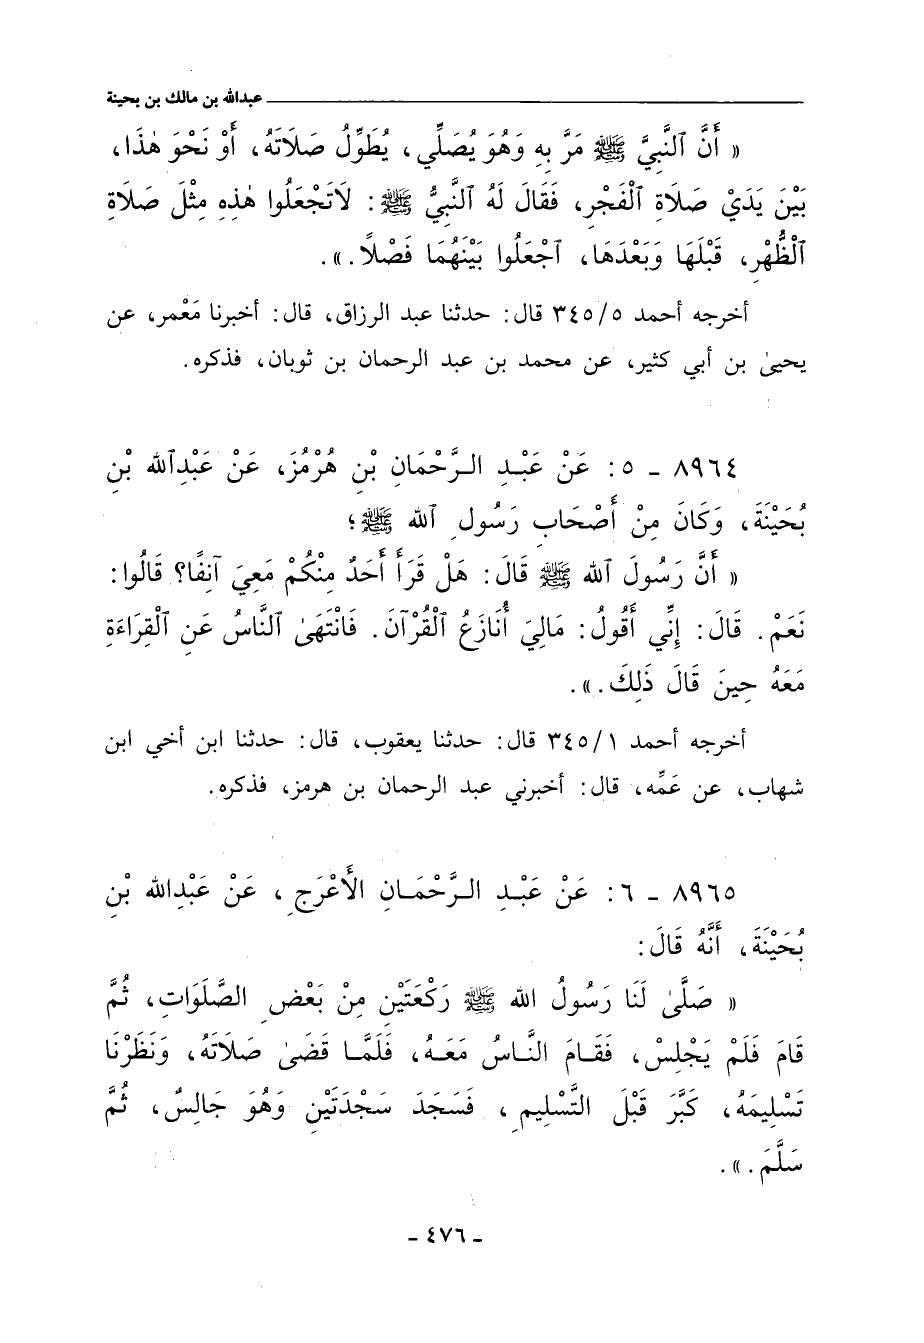 عبدالله بن مالك بن بحينة
« أَنَّ ٱلنَّبِيَّ ﷺ مَرَّ بِهِ وَهُوَ يُصَلِّي، يُطَوِّلُ صَلَاتَهُ، أَوْ نَحْوَ هٰذَا،
بَيْنَ يَدَيْ صَلَاةِ ٱلْفَجْرِ، فَقَالَ لَهُ ٱلنَّبِيُّ ﷺ: لَاتَجْعَلُوا هٰذِهِ مِثْلَ صَلَاةِ
ٱلظُّهْرِ، قَبْلَهَا وَبَعْدَهَا، ٱجْعَلُوا بَيْنَهُمَا فَصْلاً. ».
أخرجه أحمد ٣٤٥/٥ قال: حدثنا عبد الرزاق، قال: أخبرنا مَعْمر، عن
يحيىٰ بن أبي كثير، عن محمد بن عبد الرحمان بن ثوبان، فذكره.
٨٩٦٤ - ٥: عَنْ عَبْدِ الرَّحْمَانِ بْنِ هُرْمُزَ، عَنْ عَبْدِٱلله بْنِ
بُحَيْنَةَ، وَكَانَ مِنْ أَصْحَابِ رَسُولِ ٱلله ﷺ؛
« أَنَّ رَسُولَ ٱلله ﷺ قَالَ: هَلْ قَرَأَ أَحَدٌ مِنْكُمْ مَعِيَ آنِفًا؟ قَالُوا:
نَعَمْ. قَالَ: إِنِّي أَقُولُ: مَالِيَ أُنَازَعُ ٱلْقُرْآنَ. فَانْتَهَىٰ ٱلنَّاسُ عَنِ ٱلْقِرَاءَةِ
مَعَهُ حِينَ قَالَ ذَلِكَ. ».
أخرجه أحمد ٣٤٥/١ قال: حدثنا يعقوب، قال: حدثنا ابن أخي ابن
شهاب، عن عَمِّه، قال: أخبرني عبد الرحمان بن هرمز، فذكره.
٨٩٦٥ - ٦: عَنْ عَبْدِ الرَّحْمَانِ الأَعْرَجِ، عَنْ عَبْدِالله بْنِ
بُحَيْنَةَ، أَنَّهُ قَالَ:
« صَلَّىٰ لَنَا رَسُولُ الله ﷺ رَكْعَتَيْنِ مِنْ بَعْضِ الصَّلَوَاتِ، ثُمَّ
قَامَ فَلَمْ يَجْلِسْ، فَقَامَ النَّاسُ مَعَهُ، فَلَمَّا قَضَىٰ صَلَاتَهُ، وَنَظَرْنَا
تَسْلِيمَهُ، كَبَّرَ قَبْلَ التَّسْلِيمِ، فَسَجَدَ سَجْدَتَيْنِ وَهُوَ جَالِسٌ، ثُمَّ
سَلَّمَ. ».
- ٤٧٦ -